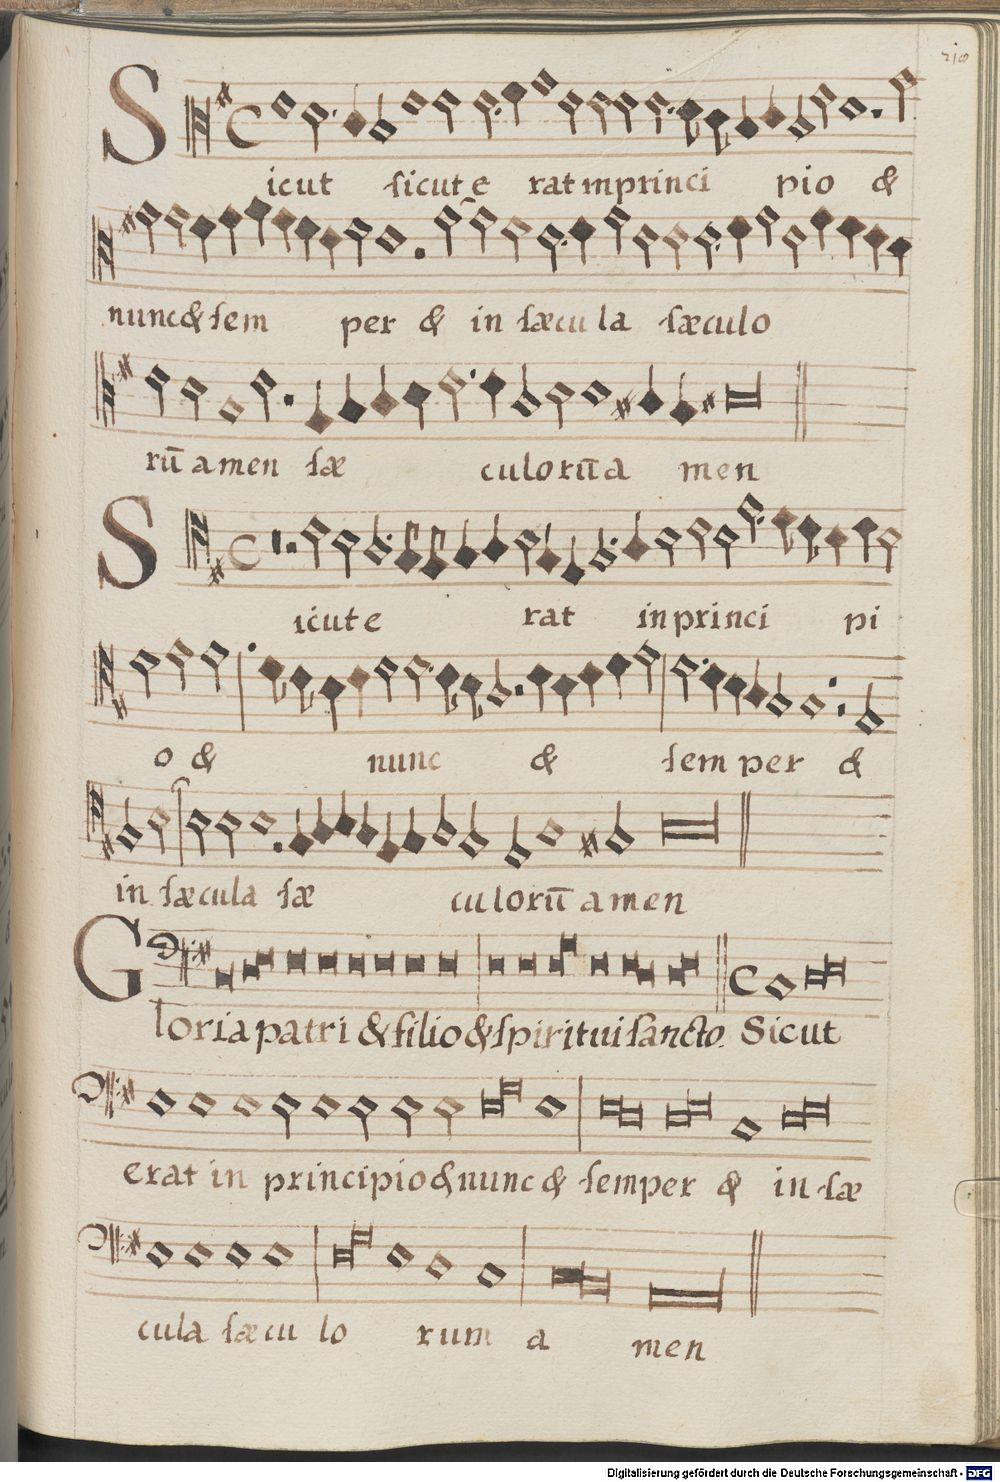 210
S icut sicut e rat in princi pio &
nunc & sem per & in sæcu la sæculo
rū amen sæ culorū a men
S icut e rat in princi pi
o & nunc & semper &
in sæcula sæ culorū amen
Gloria patri & filio & spiritui sancto. Sicut
erat in principio & nunc & semper & in sæ
cula sæcu lo rum a men
Digitalisierung gefördert durch die Deutsche Forschungsgemeinschaft - DFG